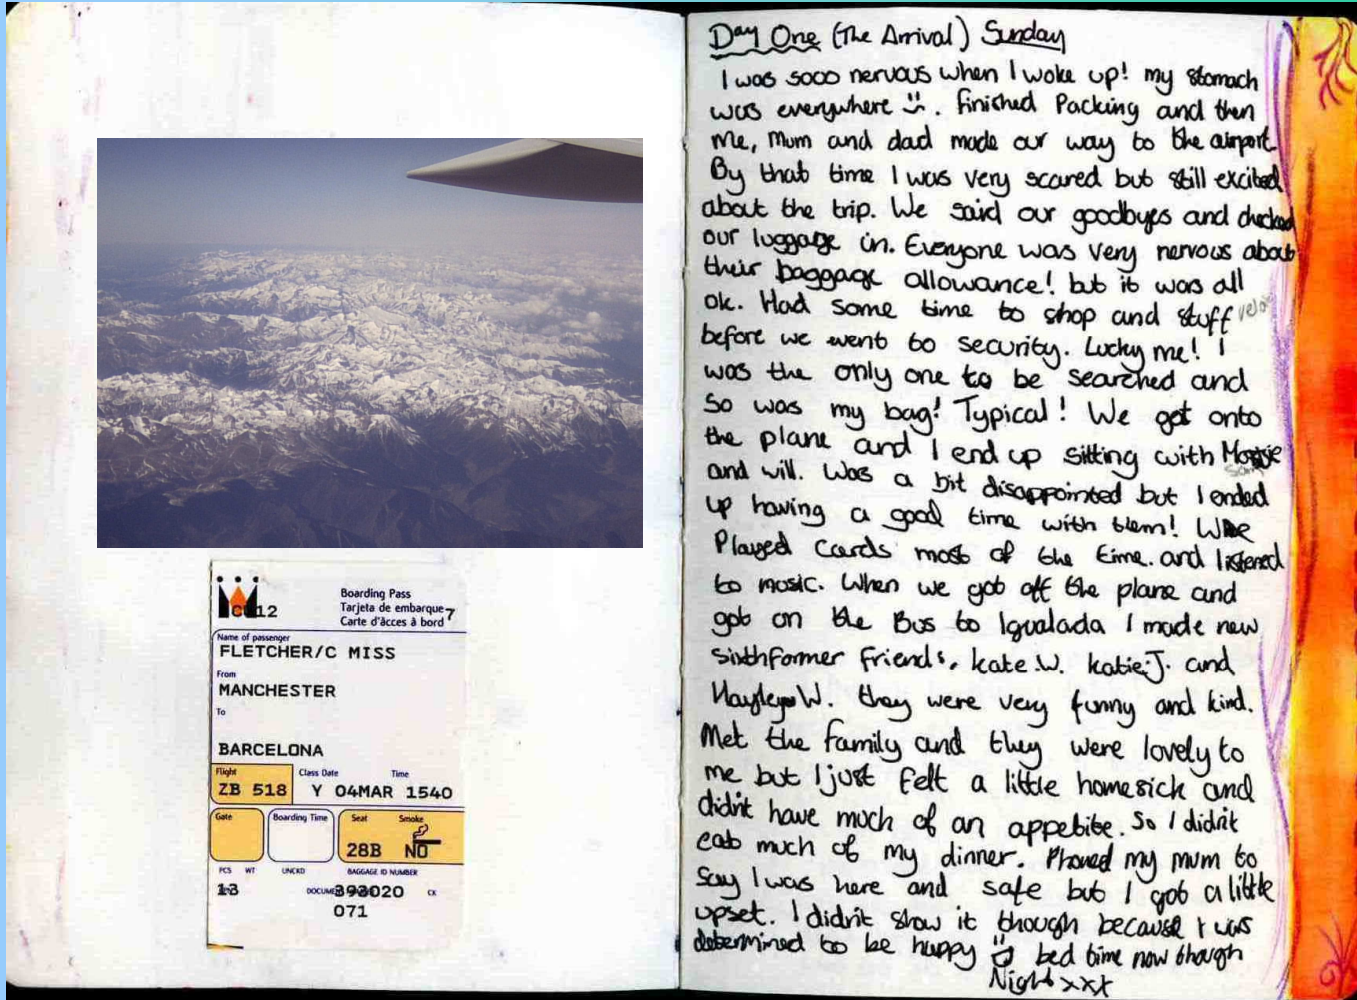 CU12
Boarding Pass
Tarjeta de embarque 7
Carte d'àcces à bord
Name of passenger
FLETCHER/C MISS
From
MANCHESTER
To
BARCELONA
Flight Class Date Time
ZB 518 Y 04MAR 1540
Gate Boarding Time Seat Smoke
28B NO
PCS WT UNCKD BAGGAGE ID NUMBER
13 393020 CK
071
Day One (The Arrival) Sunday
I was sooo nervous when I woke up! my stomach
was everywhere. finished Packing and then
me, mum and dad made our way to the airport.
By that time I was very scared but still excited
about the trip. We said our goodbyes and checked
our luggage in. Everyone was very nervous about
their baggage allowance! but it was all
ok. Had some time to shop and stuff
before we went to security. Lucky me! I
was the only one to be searched and
so was my bag! Typical! We got onto
the plane and I end up sitting with
and will. Was a bit disappointed but I ended
up having a good time with them! We
Played cards most of the time. and listened
to music. When we got off the plane and
got on the Bus to Igualada I made new
sixthformer friends, kate W. katie J. and
Hayley W. they were very funny and kind.
Met the family and they were lovely to
me but I just felt a little homesick and
didn't have much of an appetite. So I didn't
eat much of my dinner. Phoned my mum to
say I was here and safe but I got a little
upset. I didn't show it though because I was
determined to be happy bed time now though
Night xxx